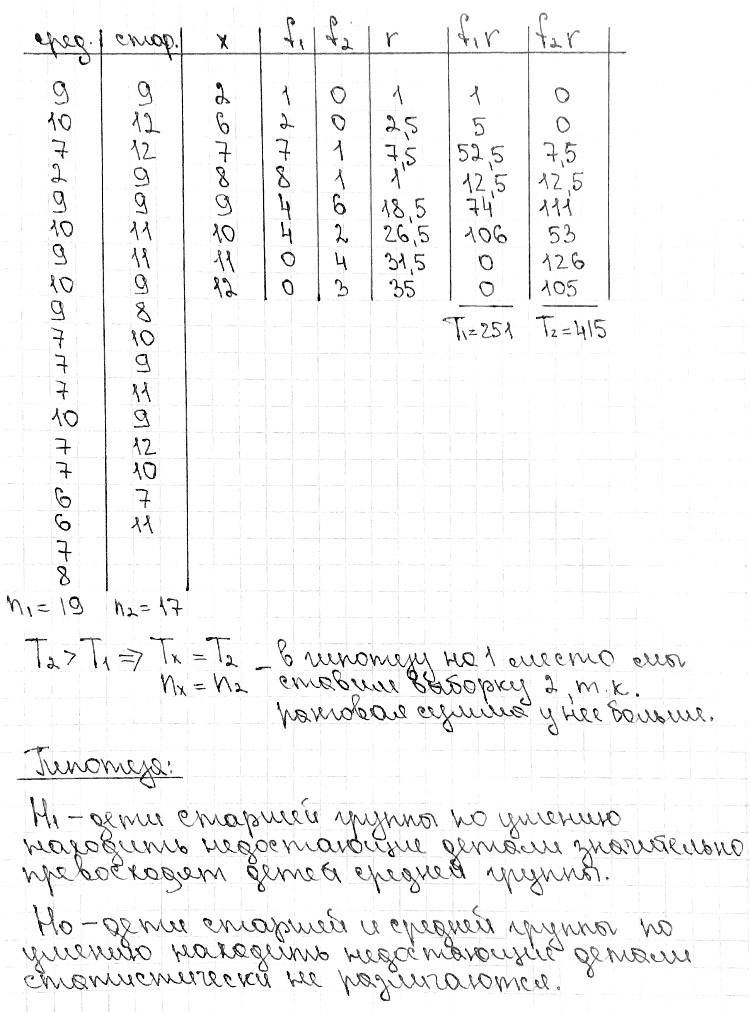 сред. стар. x f₁ f₂ r f₁r f₂r
9 9 2 1 0 1 1 0
10 12 6 2 0 2,5 5 0
7 12 7 7 1 7,5 52,5 7,5
2 9 8 8 1 1 12,5 12,5
9 9 9 4 6 18,5 74 111
10 11 10 4 2 26,5 106 53
9 11 11 0 4 31,5 0 126
10 9 12 0 3 35 0 105
9 8 T₁=251 T₂=415
7 10
7 9
7 11
10 9
7 12
7 10
6 7
6 11
7
8
n₁=19 n₂=17
T₂>T₁ ⇒ Tx=T₂ – в гипотезу на 1 место мы
nx=n₂ ставим выборку 2, т.к.
ранговая сумма у нее больше.
Гипотеза:
H₁ – дети старшей группы по умению
находить недостающие детали значительно
превосходят детей средней группы.
H₀ – дети старшей и средней группы по
умению находить недостающие детали
статистически не различаются.